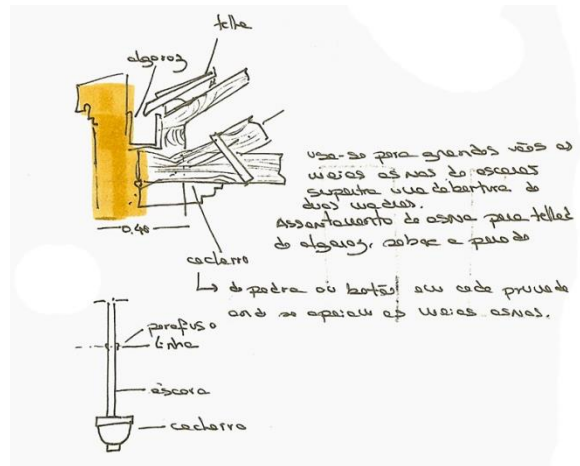 telha
algeroz
usa-se para grandes vãos as
meias asnas de escoras
suporta uma abertura de
duas
Assentamento de asna para telhado
de algeroz, sobre a parede
0,40
cachorro
↳ de pedra ou betão em cada prumada
onde se apoiam as meias asnas.
parafuso
linha
escora
cachorro